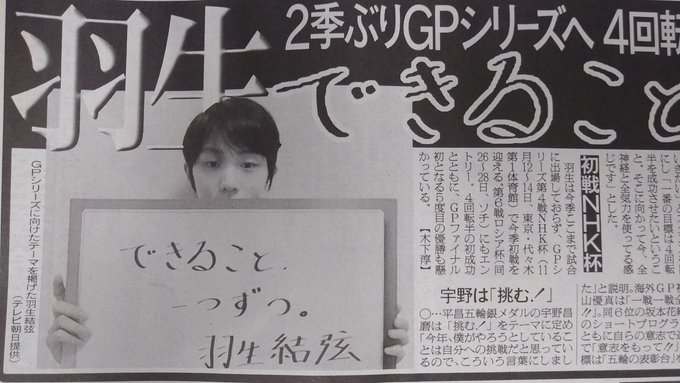 羽生
2季ぶりGPシリーズへ 4回転
できること
GPシリーズに向けたテーマを掲げた羽生結弦
(テレビ朝日提供)
できること、
一つずつ。
羽生結弦
にし「一番の目標は4回転
半を成功させたいというこ
と、そこに向かって今、全
神経と全気力を使ってる感
じです」とした。
初戦NHK杯
羽生は今季ここまで試合
に出場しておらず、GPシ
リーズ第4戦NHK杯(11
月12~14日、東京・代々木
第1体育館)で今季初戦を
迎える。第6戦ロシア杯(同
26~28日、ソチ)にもエン
トリー。4回転半の初成功
とともに、GPファイナル
初となる5度目の優勝も懸
かっている。【木下淳】
宇野は「挑む.!」
○…平昌五輪銀メダルの宇野昌
磨は「挑む.!」をテーマに定め
「今年、僕がやろうとしているこ
とは自分への挑戦だと思ってい
るので、こういう言葉にしまし
た」と説明。海外GP初
山優真は「一戦一戦全
!!」。同6位の坂本花
のショートプログラ
ともに自らの意志で道
て「意志をもって!!」
標は「五輪の表彰台」を